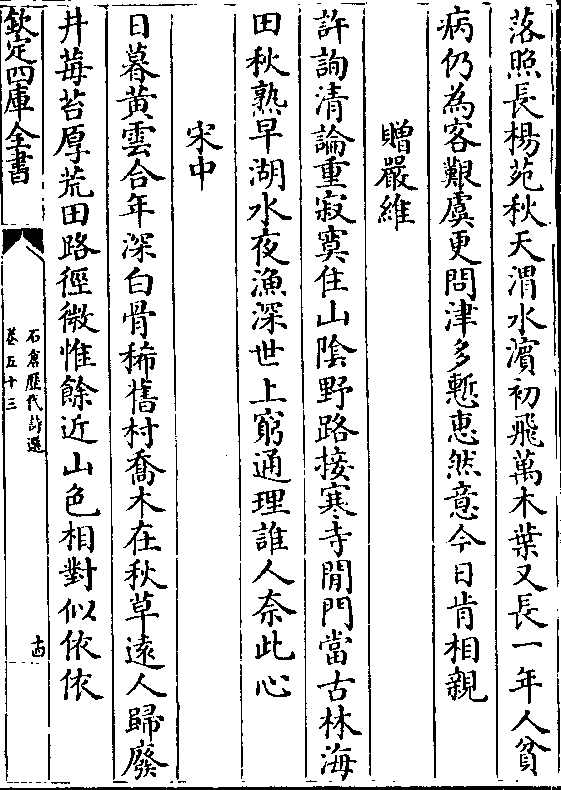 落照長楊苑秋天渭水濱初飛萬木葉又長一年人貧
病仍為客艱虞更問津多慙惠然意今日肯相親
贈嚴維
許詢清論重寂寞住山陰野路接寒寺閒門當古林海
田秋熟早湖水夜漁深世上窮通理誰人奈此心
宋中
日暮黃雲合年深白骨稀舊村喬木在秋草遠人歸廢
井莓苔厚荒田路徑微惟餘近山色相對似依依
欽定四庫全書
石倉歷代詩選
卷五十三
十四